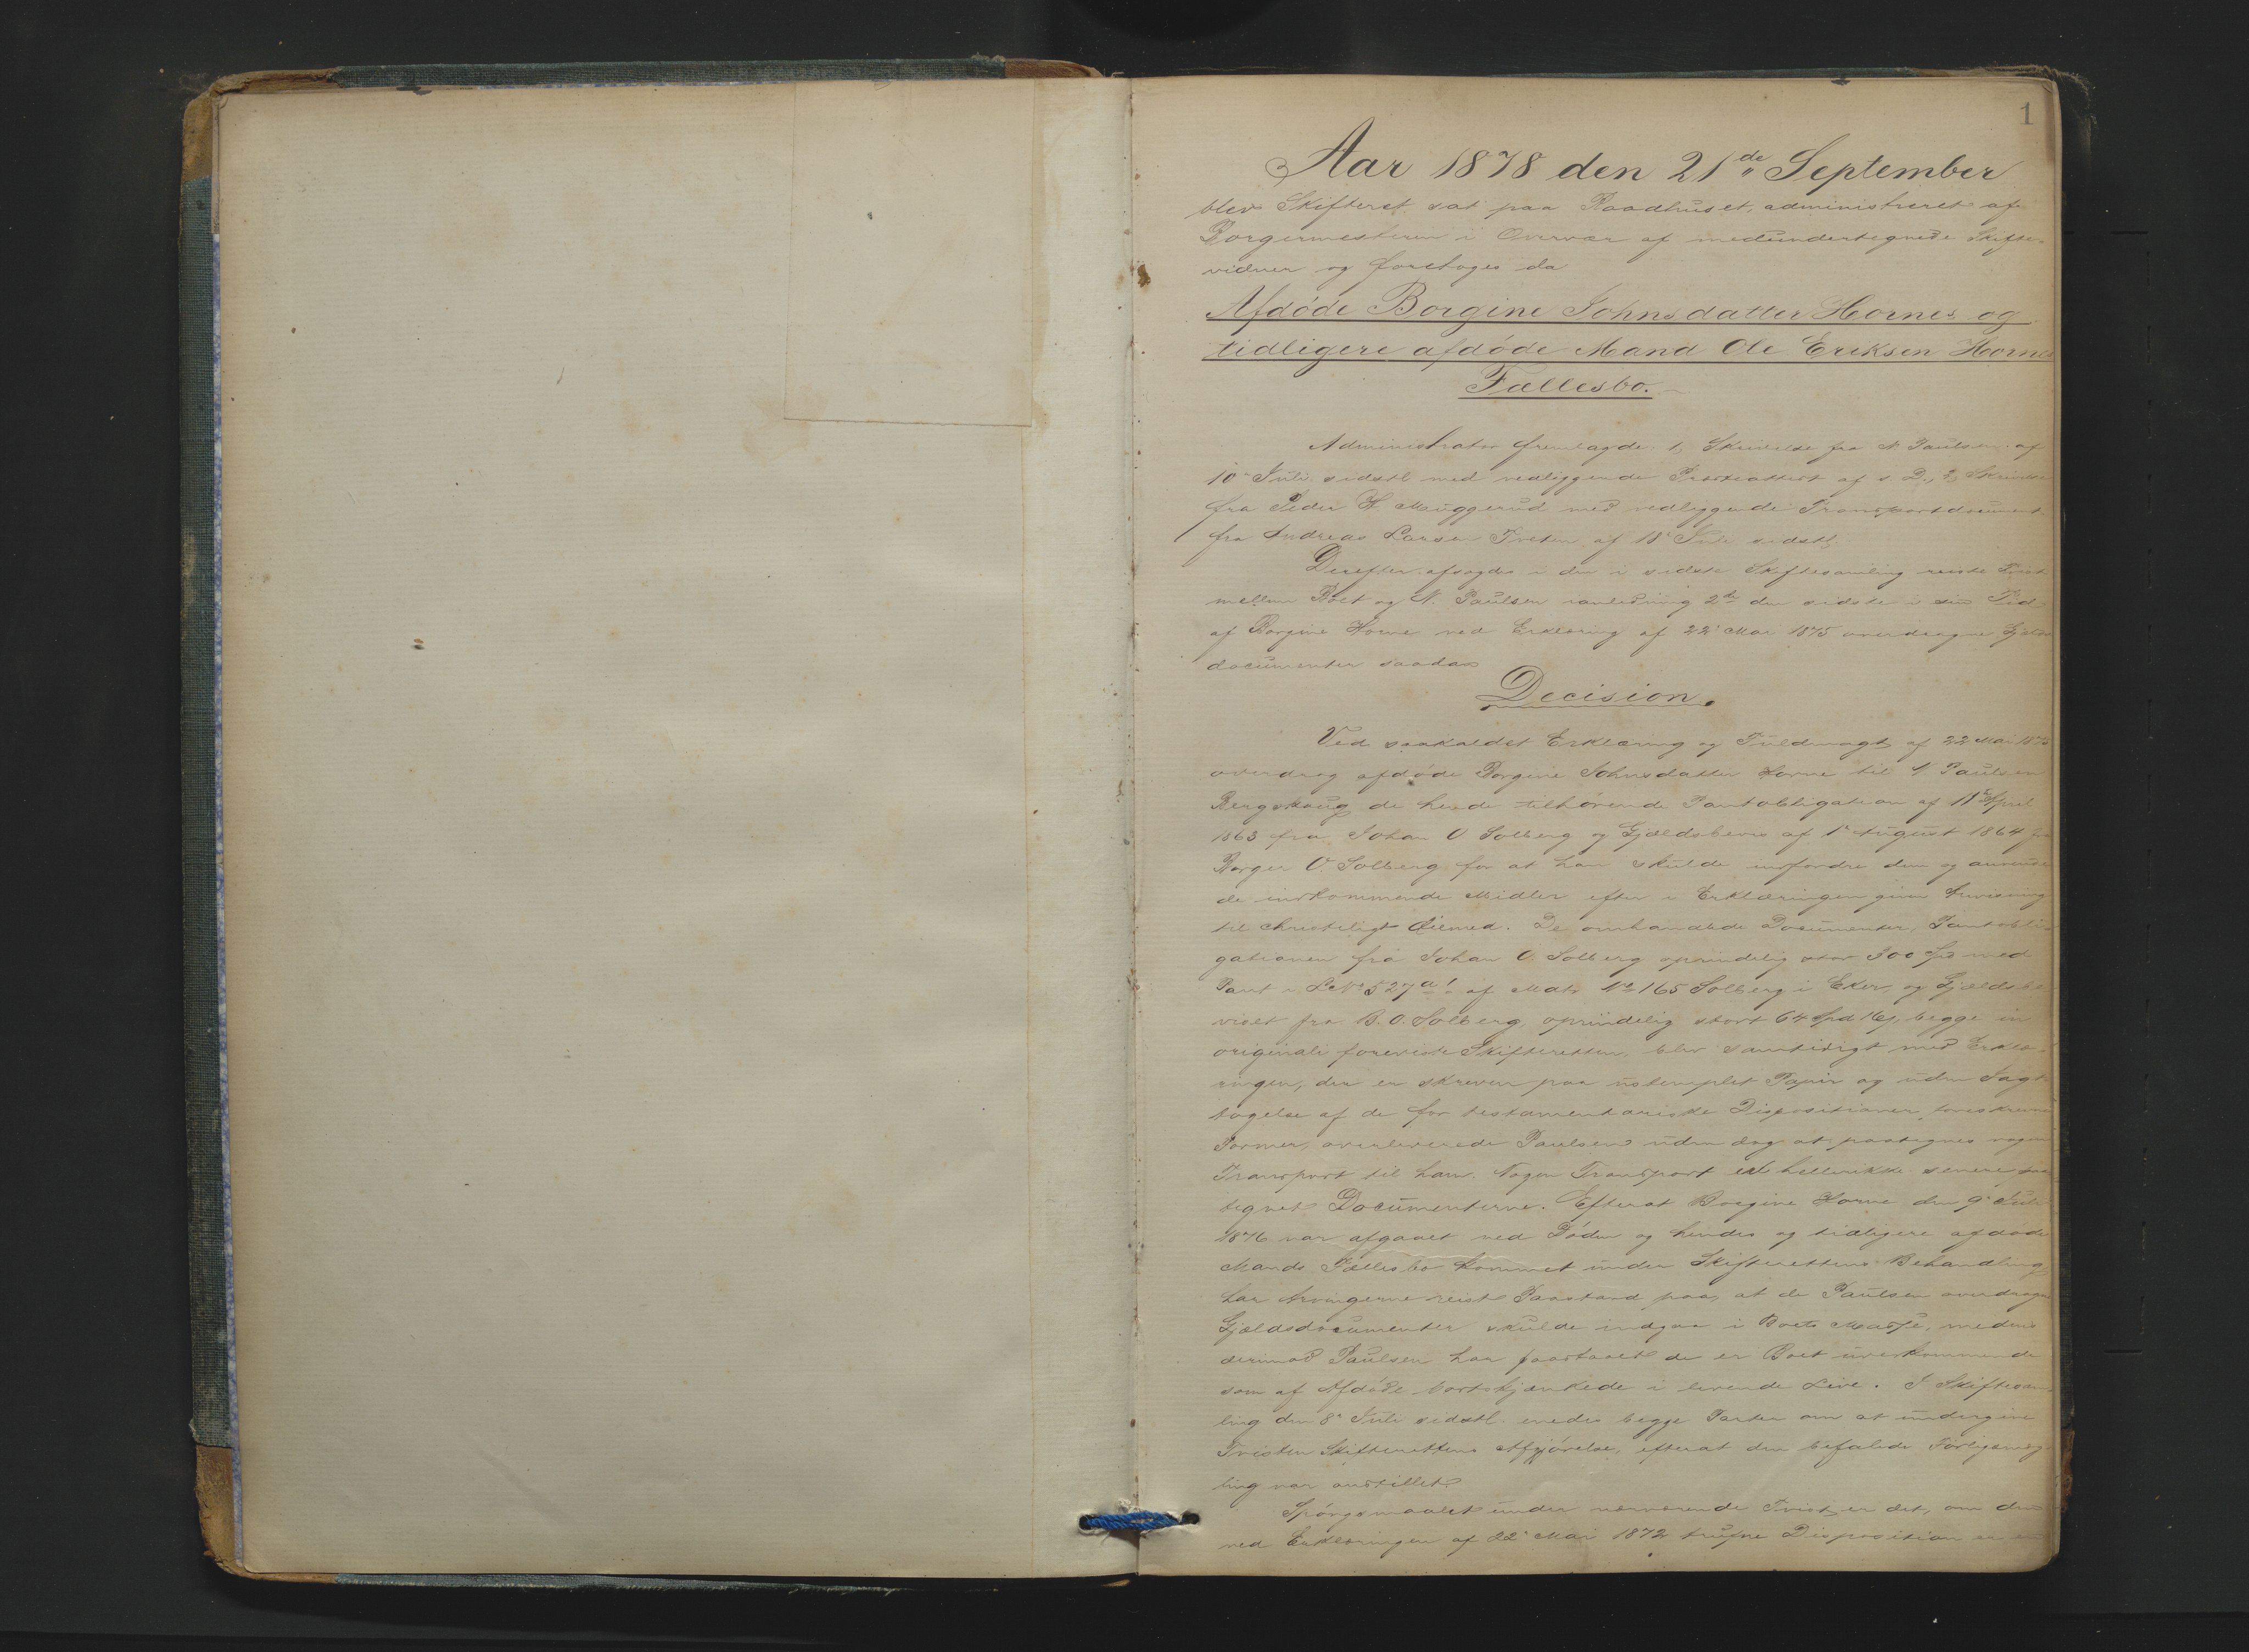 1
Aar 1878 den 21de September
blev Skifteret sat paa Raadhuset, administreret af
Borgermesteren i Overvær af medundertegnede Skifte-
vidner og foretoges da
Afdøde Borgine Johnsdatter Hornes og
tidligere afdøde Mand Ole Eriksen Hornes
Fællesbo.
Administrator fremlagde 1, Skrivelse fra N. Paulsen af
10 Juli sidstl med vedliggende af s. D., 2, Skrivelse
fra Peder H. Muggerud med vedliggende Transportdocument
fra Andreas Larsen Tveten af 18 Juli sidstl.
Derefter afsagdes i den i sidste Skiftesamling reiste Tvist
mellem Boet og N. Paulsen den sidste i sin Tid
af Borgine Horne ved Erklæring af 22 Mai 1875 overdragne Gjælds
documenter saadan
Decision.
Ved saakaldet Erklæring og Fuldmagt af 22 Mai 1875
overdrog afdøde Borgine Johnsdatter Horne til N. Paulsen
Bergskaug de hende tilhørende Pantobligation af 11 April
1863 fra Johan O Solberg og Gjældsbevis af 1 August 1864 fra
Borger O. Solberg for at han skulde indfordre dem og anvende
de indkommende Midler efter i Erklæringen given Anvisning
til christeligt Øiemed. De omhandlede Documenter, Pantobli-
gationen fra Johan O. Solberg oprindelig stor 300 Spd med
Pant i LNo 527 a1 af Matr No 165 Solberg i Eker, og Gjældsbe
viset fra B. O. Solberg, oprindelig stort 64 Spd begge in
originali foreviste Skifteretten, blev samtidigt med Erklæ-
ringen, der er skreven paa ustemplet Papir og uden Iagt-
tagelse af de for testamentariske Dispositioner foreskrevne
Former, overleverede Paulsen uden dog at paategnes nogen
Transport til ham. Nogen Transport er hellerikke senere paa
tegnet Documenterne. Efterat Borgine Horne den 9 Juli
1876 var afgaaet ved Døden og hendes og tidligere afdøde
Mands Fællesbo kommet under Skifterettens Behandling,
har Arvingerne reist Paastand paa, at de Paulsen overdragne
Gjældsdocumenter skulde indgaa i Boets Masse, medens
derimod Paulsen har paastaaet de er Boet uvedkommende
som af Afdøde bortskjænkede i levende Live. I Skiftesam
ling den 8 Juli sidstl. enedes begge Parter om at undergive
Tvisten Skifterettens Afgjørelse, efterat den befalede Forligsmæg
ling var anstillet.
Spørgsmaalet under nærværende Tvist er det, om den
ved Erklæringen af 22 Mai 1872 trufne Disposition er en